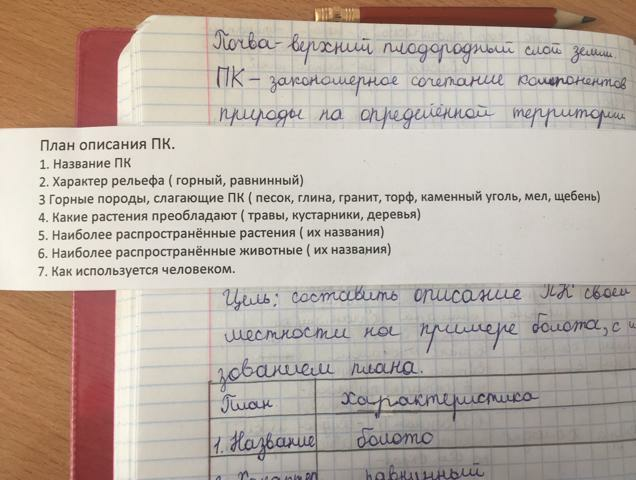 Почва - верхний плодородный слой земли.
ПК - закономерное сочетание компонентов
природы на определённой территории
План описания ПК.
1. Название ПК
2. Характер рельефа ( горный, равнинный)
3 Горные породы, слагающие ПК ( песок, глина, гранит, торф, каменный уголь, мел, щебень)
4. Какие растения преобладают ( травы, кустарники, деревья)
5. Наиболее распространённые растения ( их названия)
6. Наиболее распространённые животные ( их названия)
7. Как используется человеком.
Цель: составить описание ПК своей
местности на примере болота, с и
зованием плана.
План характеристика
1. Название болото
2. Характер равнинный